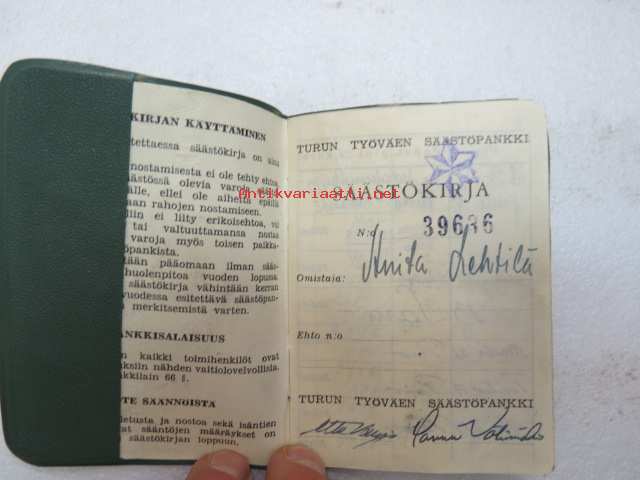 KIRJAN KÄYTTÄMINEN
tettaessa säästökirja on aina
nostamisesta ei ole tehty ehtoa,
säästössä olevia varoja
älle, ellei ole aihetta epäillä
aan rahojen nostamiseen.
llin ei liity erikoisehtoa, voi
tai valtuuttamansa nostaa
varoja myös toisen paikka-
öpankista.
tään pääomaan ilman sääs-
huolenpitoa vuoden lopussa.
säästökirja vähintään kerran
vuodessa esitettävä säästöpan-
merkitsemistä varten.
ANKKISALAISUUS
n kaikki toimihenkilöt ovat
uksiin nähden vaitiolovelvollisia.
kkilain 66 §.
TE SÄÄNNÖISTÄ
letusta ja nostoa sekä isäntien
at sääntöjen määräykset on
säästökirjan loppuun.
TURUN TYÖVÄEN SÄÄSTÖPANKKI
SÄÄSTÖKIRJA
Antikvariaatti.net
N:o 39686
Omistaja: Anita Lehtilä
Ehto n:o
TURUN TYÖVÄEN SÄÄSTÖPANKKI